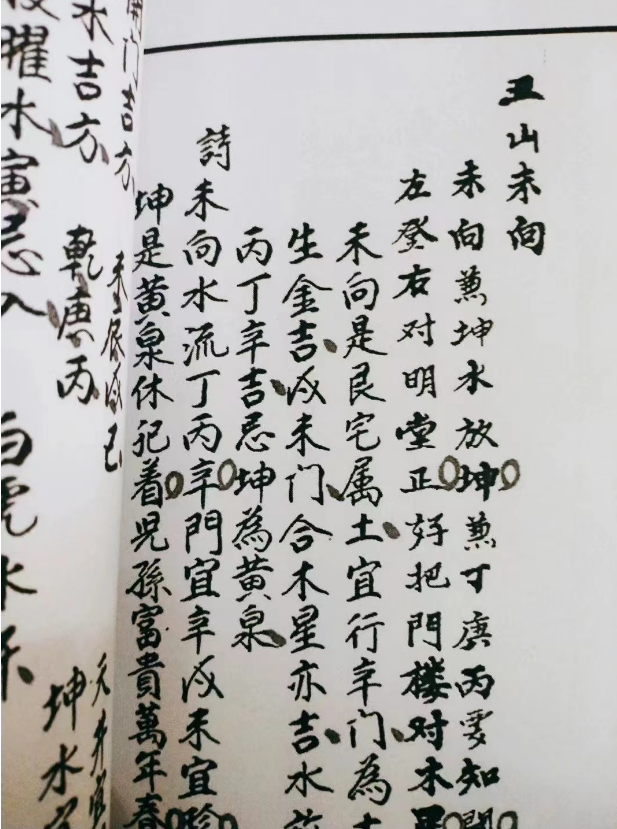 丑山未向
未向兼坤水放坤兼丁庚丙要知
左登右对明堂正好把門樓对木
未向是艮宅属土宜行辛门為
生金吉戌未门合木星亦吉水
丙丁辛吉忌坤為黄泉
詩
未向水流丁丙辛門宜辛戌未宜
坤是黄泉休犯着児孫富貴萬年春
開门吉方
水吉方
乾庚丙
坤水
曜水寅忌
白虎水